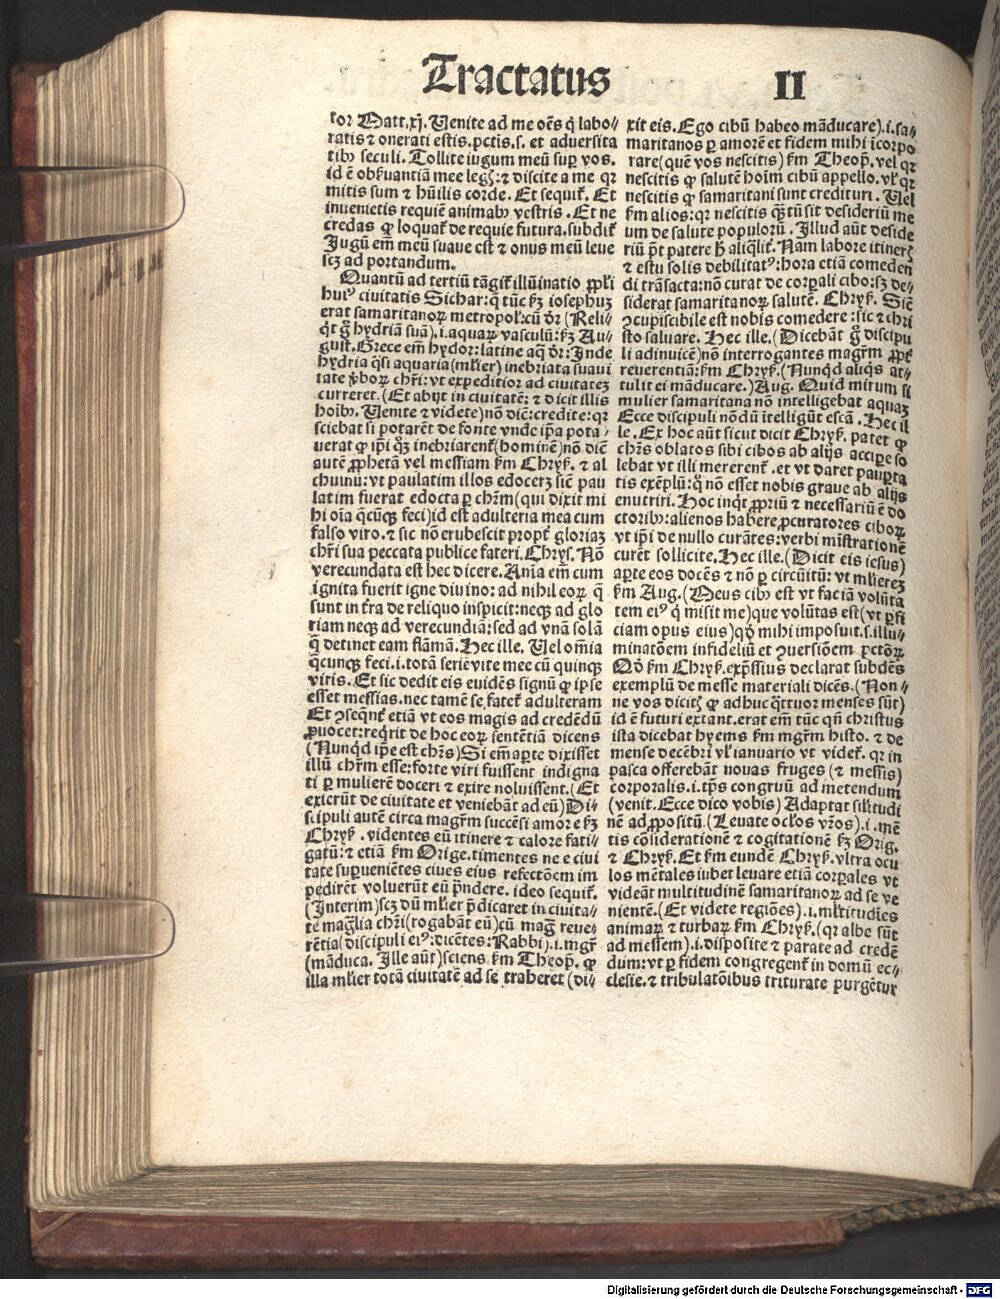 Tractatus II
tor Matt.xj. Uenite ad me oẽs q̃ labo⸗
ratis ⁊ onerati estis.pctis.s. et aduersita
tibꝰ seculi. Tollite iugum meũ suꝑ vos.
id ẽ obseruantiã mee legꝭ:⁊ discite a me qꝛ
mitis sum ⁊ hũilis corde. Et sequit᷑. Et
inuenietis requiẽ animabꝰ vestris. Et ne
credas ꝙ loquat᷑ de requie futura.subdit᷑
Jugũ em̃ meũ suaue est ⁊ onus meũ leue
scꝫ ad portandum.
Quantũ ad tertiũ tãgit᷑ illũinatio ꝓpl̃i
huiꝰ ciuitatis Sichar:q̃ tũc ẜm iosephuꝫ
erat samaritanoꝝ metropol:cũ dr̃ (Reli⸗
q̃t ḡ hydriã suã).i.aquaꝝ vasculũ:ẜm Au⸗
gust. Grece em̃ hydor:latine aq̃ dr̃:Inde
hydria q̃si aquaria(ml̃ier) inebriata suaui
tate ṽboꝝ chr̃i:vt expeditior ad ciuitateꝫ
curreret.(Et abijt in ciuitatẽ: ⁊ dicit illis
hoĩbꝰ. Uenite ⁊ videte)nõ dic̃:credite:qꝛ
sciebat si potarẽt de fonte vnde ip̃a pota⸗
uerat ꝙ ip̃i q̃ꝫ inebriarent᷑(hominẽ)nõ dic̃
autẽ ꝓphetã vel messiam ẜm Chrys̃. ⁊ al
chuinũ:vt paulatim illos edoceꝫ sic̃ pau
latim fuerat edocta ꝑ chr̃m(qui dixit mi
hi oĩa q̃cũqꝫ feci)id est adulteria mea cum
falso viro.⁊ sic nõ erubescit propt᷑ gloriaꝫ
chr̃i sua peccata publice fateri. Chrys. Nõ
verecundata est hec dicere. Aĩa em̃ cum
ignita fuerit igne diuino: ad nihil eoꝝ q̃
sunt in tr̃a de reliquo inspicit:neqꝫ ad glo
riam neqꝫ ad verecundiã:sed ad vnã solã
q̃ detinet eam flãmã. Hec ille. Uel om̃ia
q̃cunqꝫ feci.i.totã seriẽ vite mee cũ quinqꝫ
viris. Et sic dedit eis euidẽs signũ ꝙ ipse
esset messias.nec tamẽ se fatet᷑ adulteram
Et ꝯseqñt᷑ etiã vt eos magis ad credẽdũ
ꝓuocet:req̃rit de hoc eoꝝ sentẽtiã dicens
(Nunq̃d ip̃e est chr̃s)Si em̃ aꝑte dixisset
illũ chr̃m esse:forte viri fuissent indigna
ti ꝑ mulierẽ doceri ⁊ exire noluissent.(Et
exierũt de ciuitate et veniebãt ad eũ)Di⸗
scipuli autẽ circa magr̃m succẽsi amore ẜm
Chrys̃. videntes eũ itinere ⁊ calore fati⸗
gatũ:⁊ etiã ẜm Orige.timentes ne e ciui
tate suꝑueniẽtes ciues eius refectõem im
pedirẽt voluerũt eũ p̃ndere. ideo sequit᷑.
(Interim)scꝫ dũ ml̃ier p̃dicaret in ciuita⸗
te mag̃lia chr̃i(rogabãt eũ)cũ mag̃ reue⸗
rẽtia(discipuli eiꝰ:dicẽtes:Rabbi).i.mgr̃
(mãduca. Ille aũt)sciens ẜm Theop̃. ꝙ
illa ml̃ier totã ciuitatẽ ad se traheret (di⸗
xit eis.Ego cibũ habeo mãducare).i.sa⸗
maritanos ꝑ amorẽ et fidem mihi ĩcorpo
rare(quẽ vos nescitis) ẜm Theop̃. vel qꝛ
nescitis ꝙ salutẽ hoĩm cibũ appello. vl̃ qꝛ
nescitis ꝙ samaritani sunt credituri. Uel
ẜm alios:qꝛ nescitis q̃tũ sit desideriũ me
um de salute populorũ. Illud aũt deside
riũ p̃t patere h̃ aliq̃lit᷑. Nam labore itineꝝ
⁊ estu solis debilitatꝰ:hora etiã comedeñ
di trãsacta:nõ curat de corꝑali cibo:sꝫ de⸗
siderat samaritanoꝝ salutẽ. Chrys̃. Sic̃
ꝯcupiscibile est nobis comedere:sic ⁊ chri
sto saluare. Hec ille. (Dicebãt ḡ discipu
li adinuicẽ)nõ interrogantes magr̃m ꝓpt᷑
reuerentiã:ẜm Chrys̃.(Nunq̃d aliq̃s at⸗
tulit ei mãducare.)Aug. Quid mirum si
mulier samaritana nõ intelligebat aquaꝫ
Ecce discipuli nõdũ ĩtelligũt escã. Hec il
le. Ex hoc aũt sicut dicit Chrys̃. patet ꝙ
chr̃s oblatos sibi cibos ab alijs acciꝑe so
lebat vt illi mererent᷑.et vt daret pauꝑta
tis exẽplũ:q̃ nõ esset nobis graue ab alijs
enutriri. Hoc inq̃t ꝓpriũ ⁊ necessariũ ẽ do
ctoribꝰ:alienos habere ꝓcuratores ciboꝝ
vt ip̃i de nullo curãtes:verbi mĩstrationẽ
curẽt sollicite. Hec ille.(Dicit eis iesus)
aꝑte eos docẽs ⁊ nõ ꝑ circũitũ: vt ml̃iereꝫ
ẜm Aug.(Meus cibꝰ est vt faciã volũta
tem eiꝰ q̃ misit me)que volũtas est(vt ꝑfi
ciam opus eius)qđ mihi imposuit.s.illu⸗
minatõem infideliũ et ꝯuersiõem pctõꝝ
Qđ ẜm Chrys̃.exp̃ssius declarat subdẽs
exemplũ de messe materiali dicẽs.(Non⸗
ne vos dicitꝭ ꝙ adhuc q̃ttuor menses sũt)
id ẽ futuri extant.erat em̃ tũc qñ christus
ista dicebat hyems ẜm mgr̃m histo. ⁊ de
mense decẽbri vl̃ ianuario vt videt᷑. qꝛ in
pasca offerebãt nouas fruges (⁊ messis)
corporalis.i.tp̃s congruũ ad metendum
(venit. Ecce dico vobis) Adaptat sil̃itudi
nẽ ad ꝓpositũ.(Leuate ocl̃os vr̃os).i.mẽ
tis cõsiderationẽ ⁊ cogitationẽ ẜm Orig.
⁊ Chrys̃. Et ẜm eundẽ Chrys̃. vltra ocu
los mẽtales iubet leuare etiã corꝑales vt
videãt multitudinẽ samaritanoꝝ ad se ve
nientẽ.(Et videte regiões).i.ml̃titudĩes
animaꝝ ⁊ turbaꝝ ẜm Chrys̃.(qꝛ albe sũt
ad messem).i.disposite ⁊ parate ad credẽ
dum:vt ꝑ fidem congregent᷑ in domũ ec⸗
clesie.⁊ tribulatõibus triturate purgẽtur
Digitalisierung gefördert durch die Deutsche Forschungsgemeinschaft - DFG